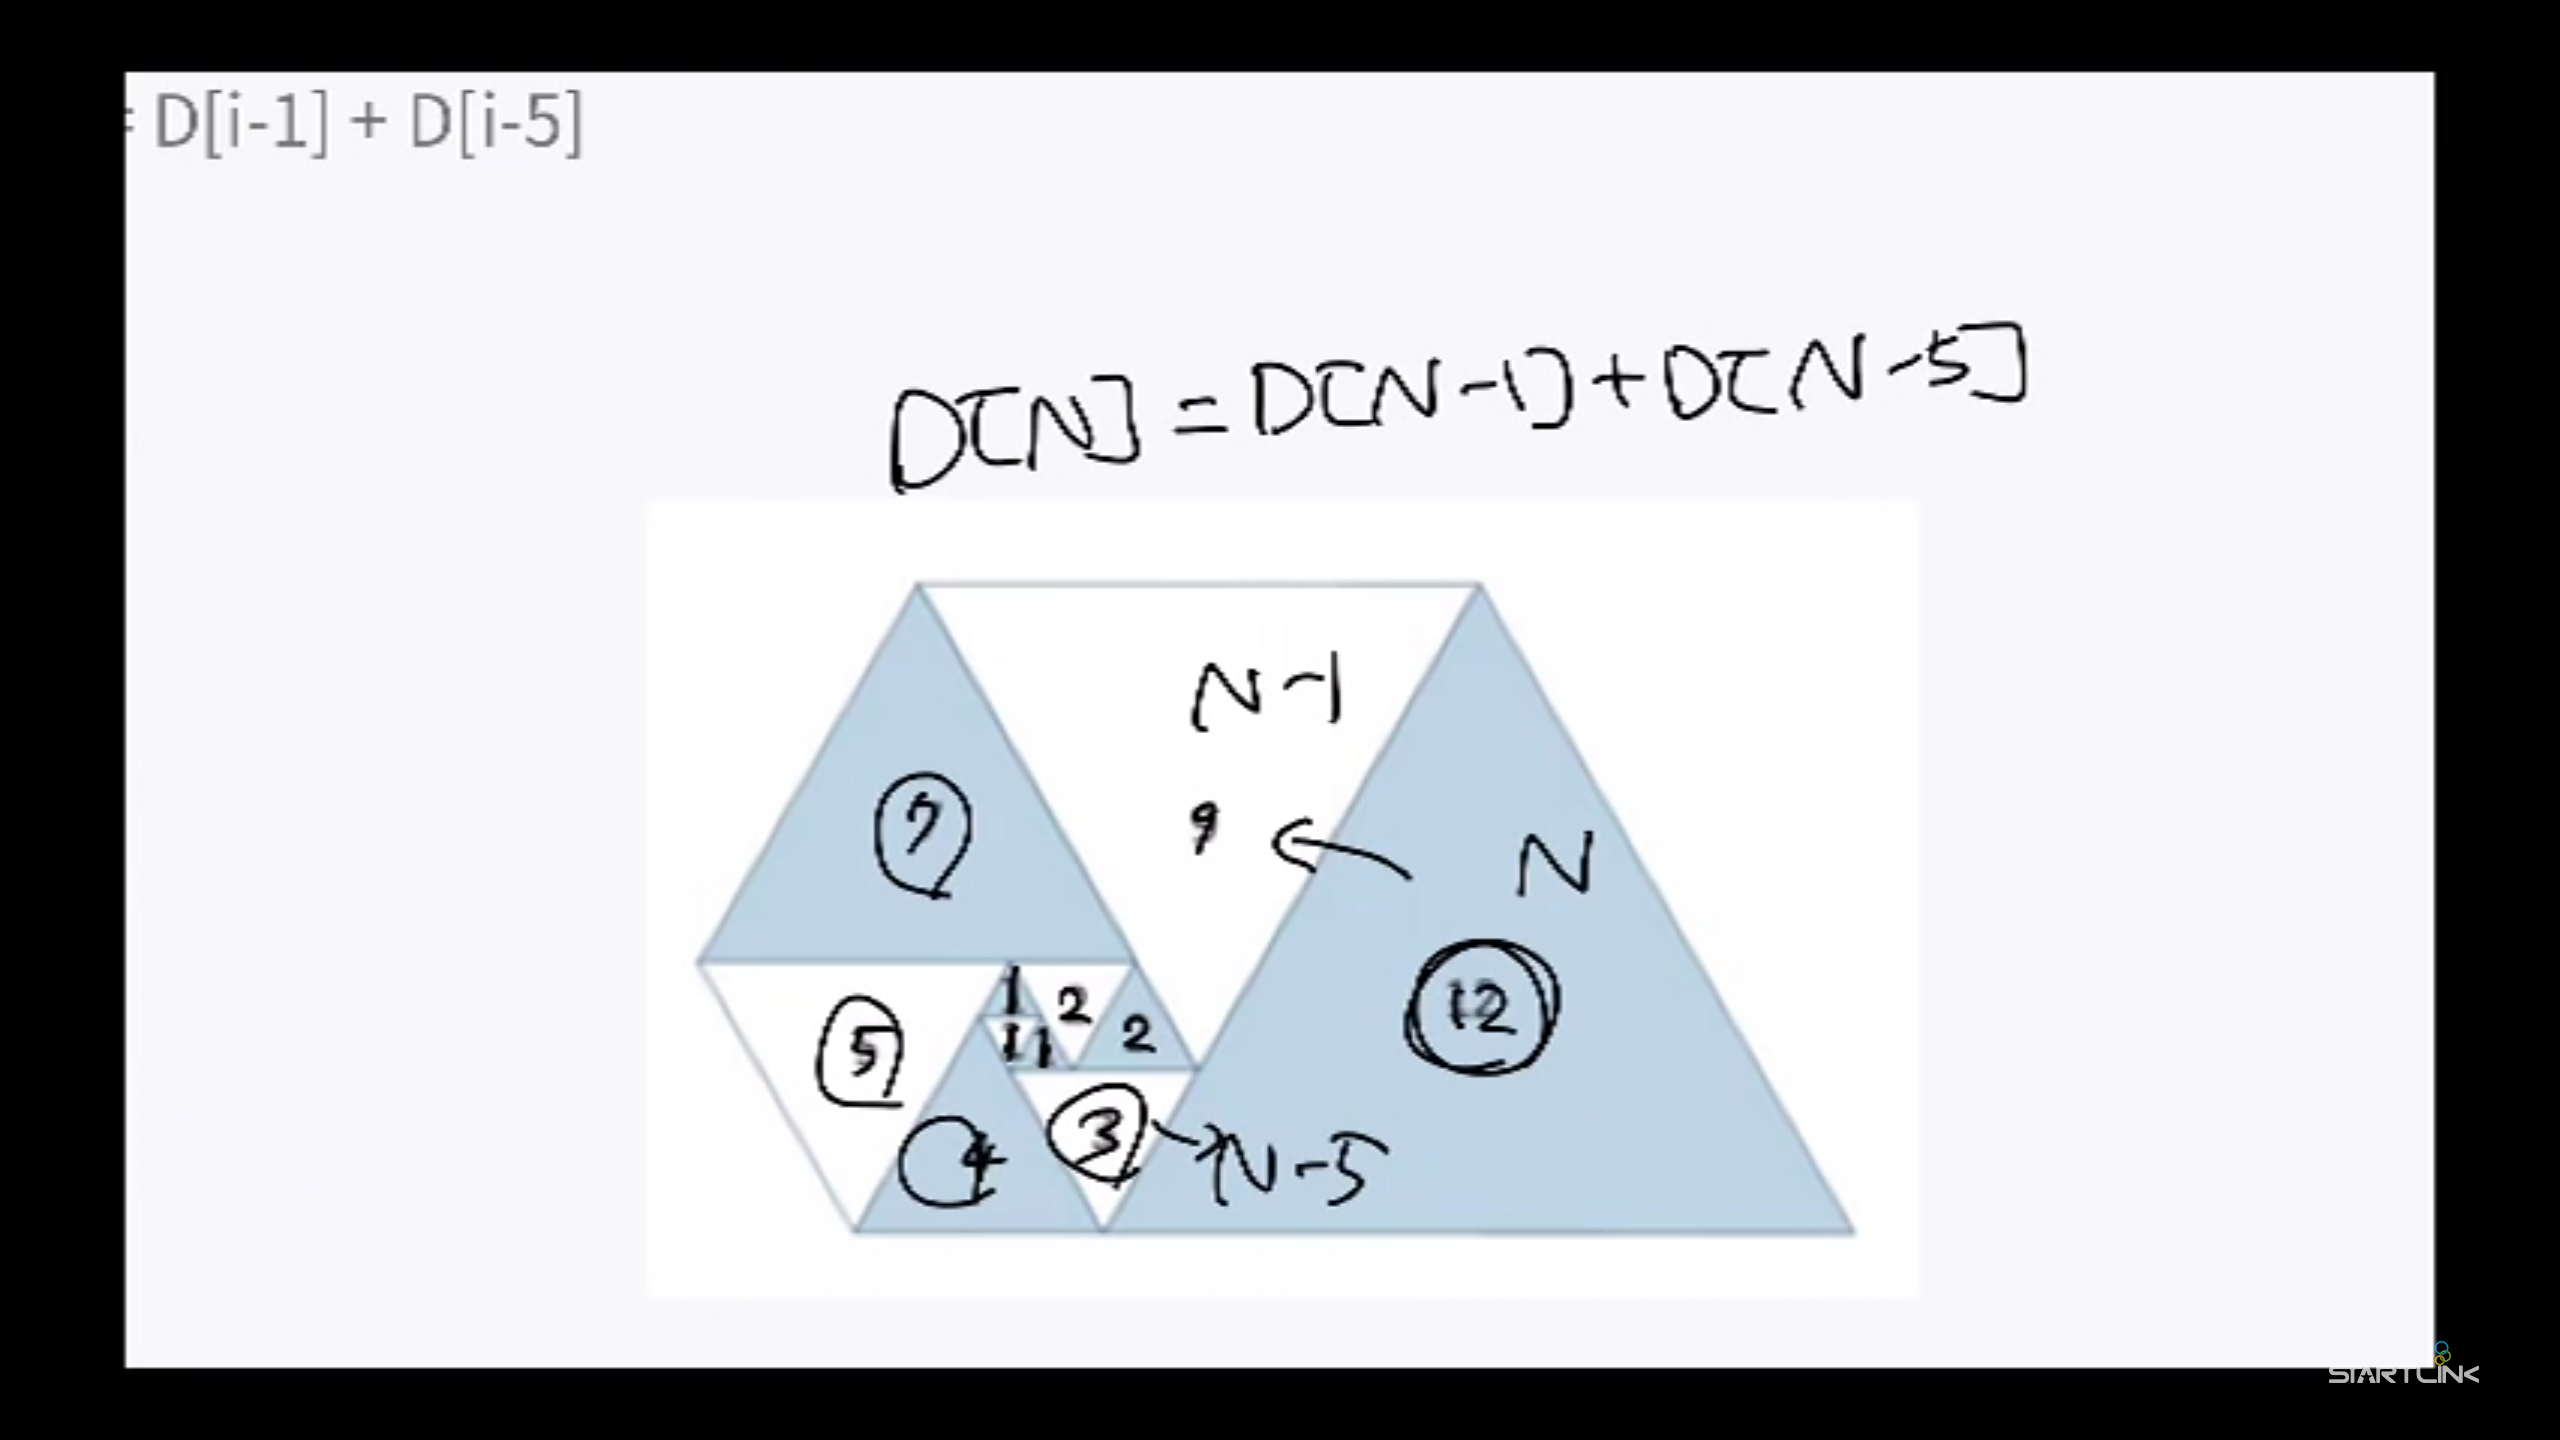 = D[i-1] + D[i-5]
D[N] = D[N-1] + D[N-5]
N-1
7
9
N
1
2
12
5
1 1
2
4
3
N-5
STARTLINK